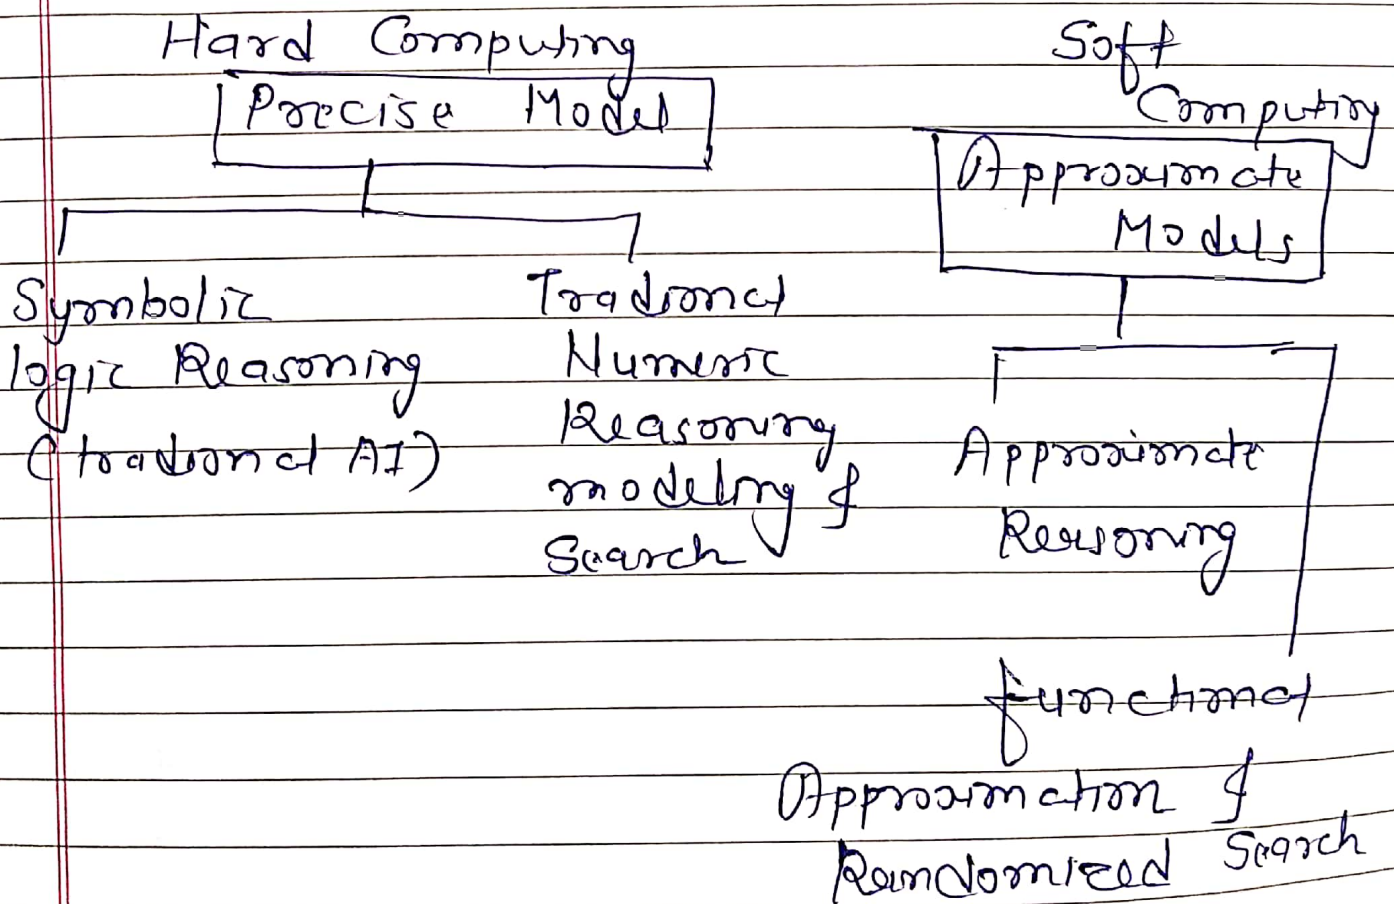 Hard Computing
Precise Model
Symbolic
logic Reasoning
(tradional AI)
Tradional
Numeric
Reasoning
modeling &
Search
Soft
Computing
Approximate
Models
Approximate
Reasoning
functional
Approximation &
Randomized Search